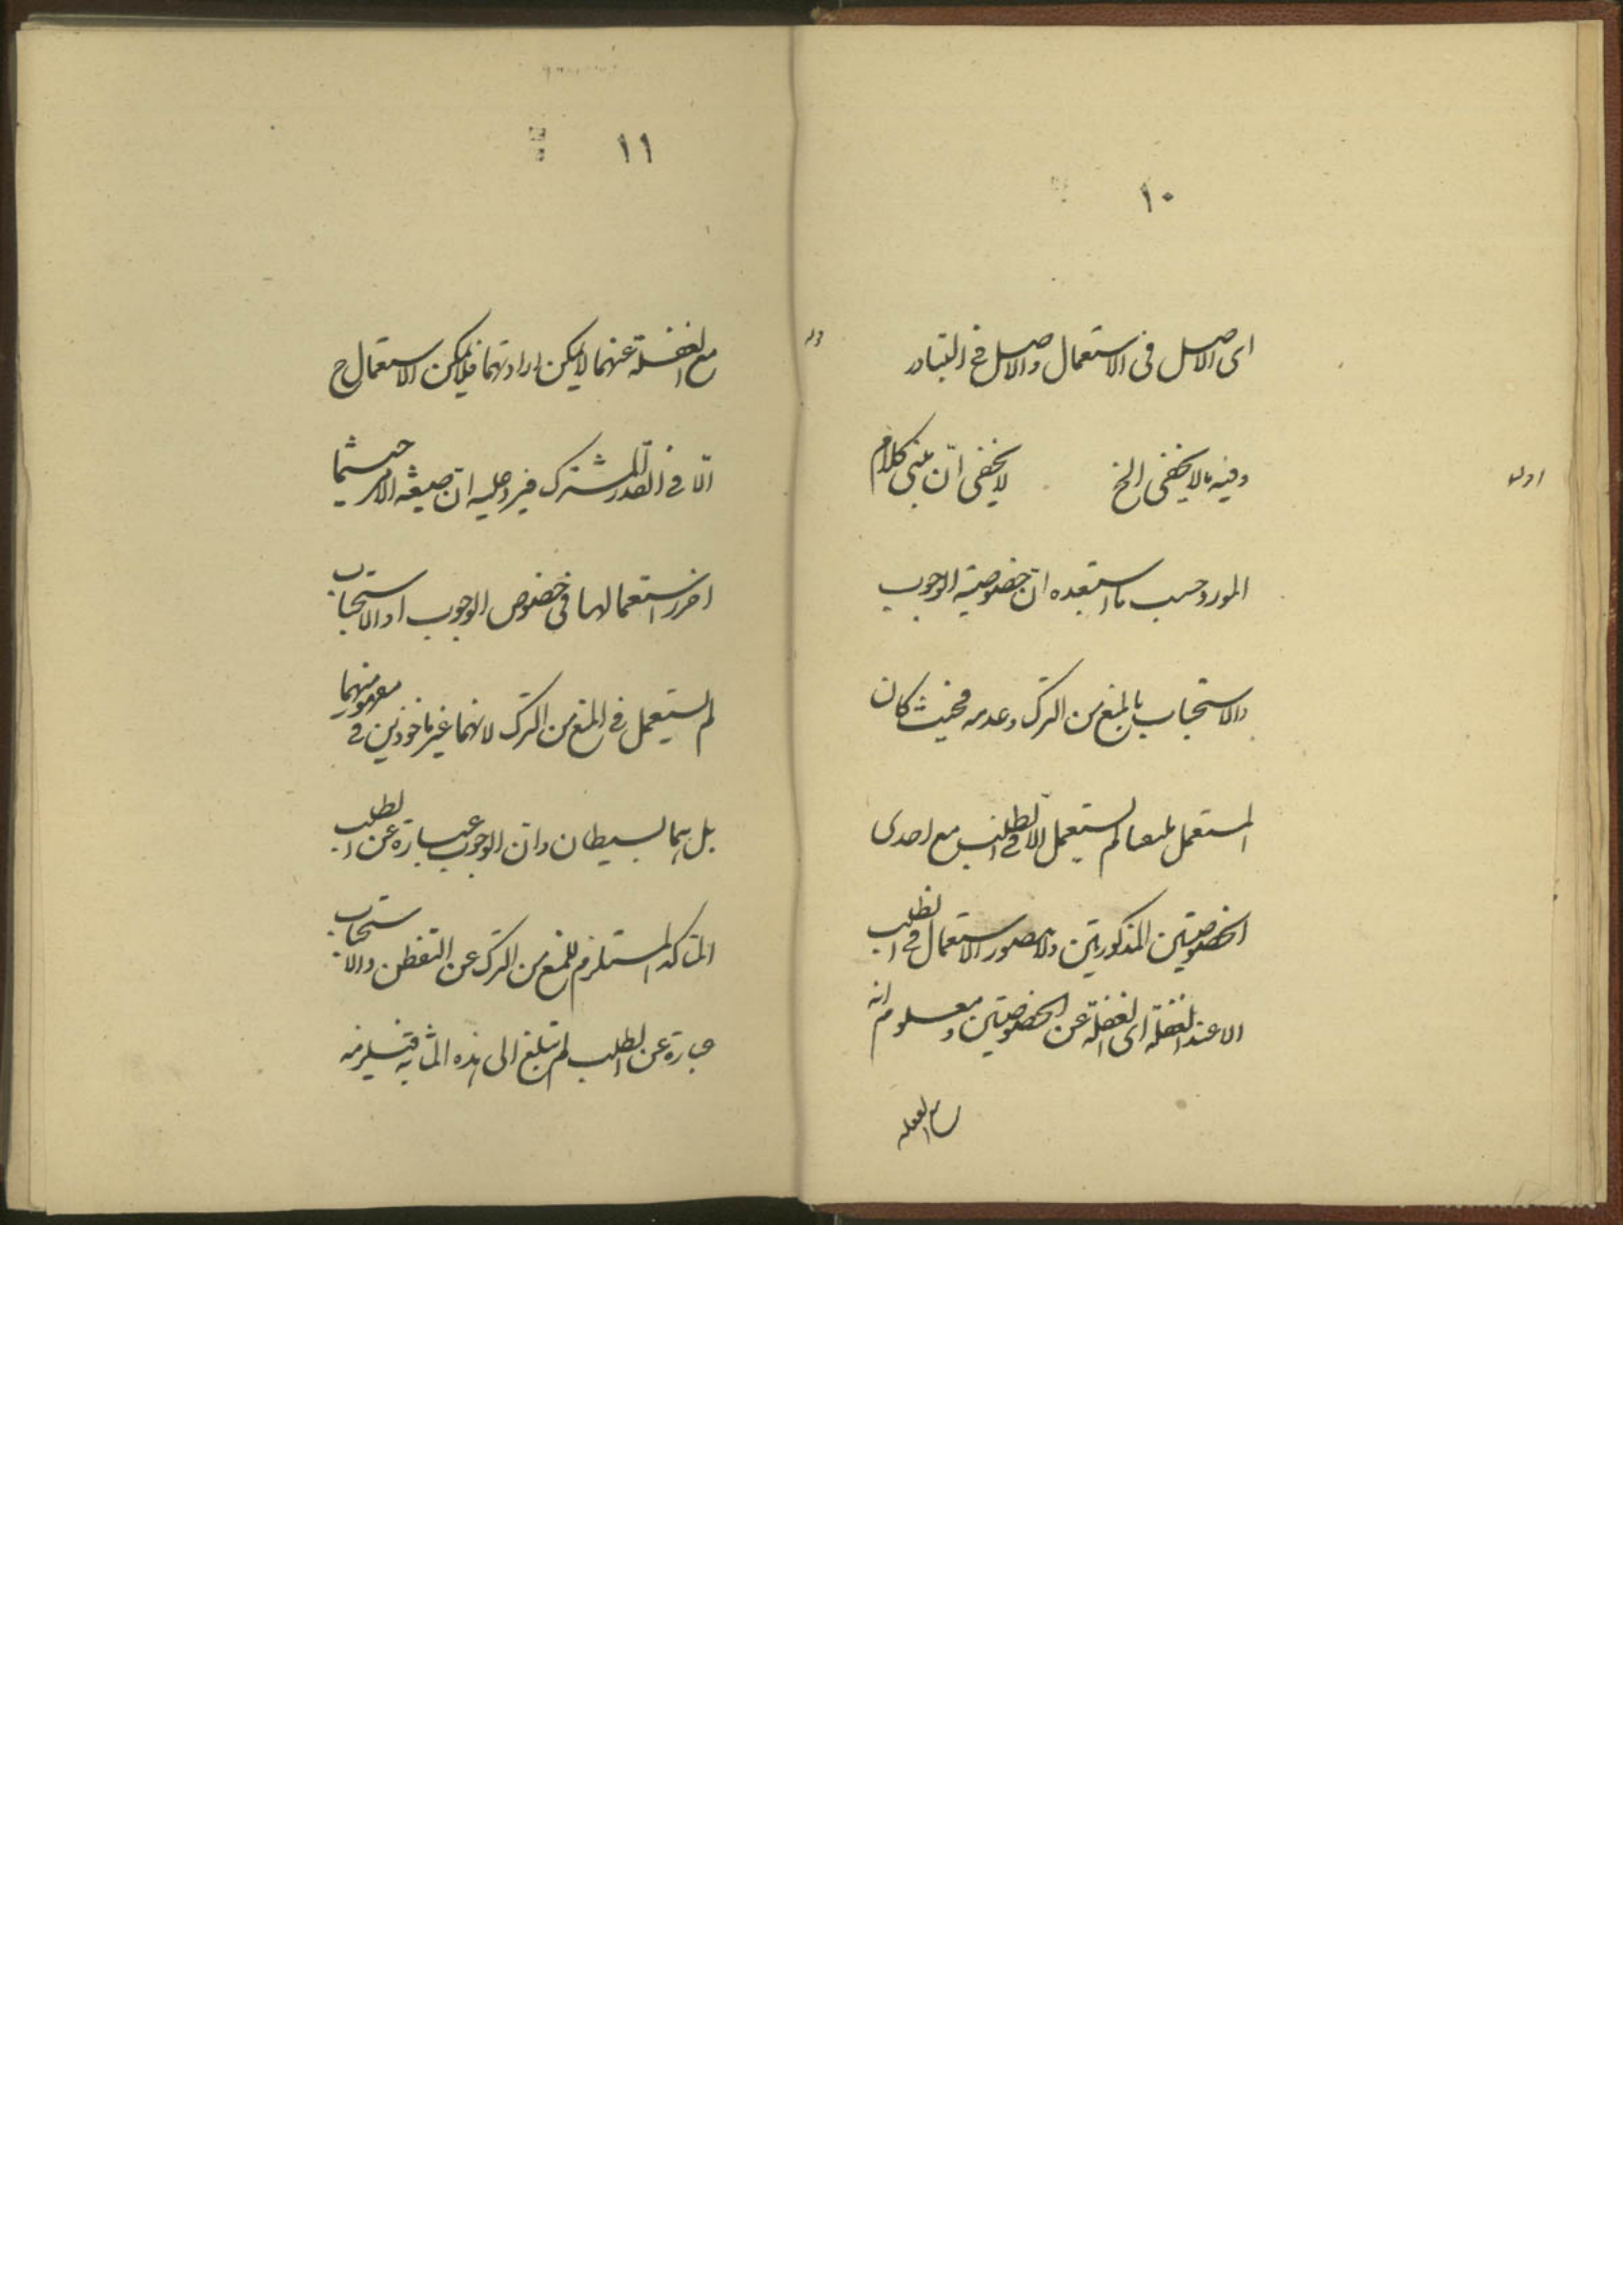 ١٠
اى الاصل فى الاستعمال والاصل فى التبادر
وفيه ما لا يخفى الخ لا يخفى انّ مبنى كلام
المورد حسب ما استبعده انّ خصوصية الوجوب
والاستحباب بالمنع من الترك وعدمه فحيث كان
المستعمل ملتفتا لم يستعمل الا فى الطلب مع احدى
الخصوصيتين المذكورتين ولا يتصور الاستعمال فى الطلب
الا عند الغفلة اى الغفلة عن الخصوصيتين ومعلوم انه
مع الغفلة
١١
مع الغفلة عنهما لا يمكن ارادتهما فلا يمكن الاستعمال ح
الّا فى القدر المشترك فيرد عليه انّ صيغة الامر حيثما
احرز استعمالها فى خصوص الوجوب او الاستحباب
لم يستعمل فى المنع من الترك لانهما غير ماخوذين فى مفهومهما
بل هما بسيطان وانّ الوجوب عبارة عن الطلب
المتاكد المستلزم للمنع من الترك عن التفطن والاستحباب
عبارة عن الطلب لم تبلغ الى هذه المثابة فيلزمه